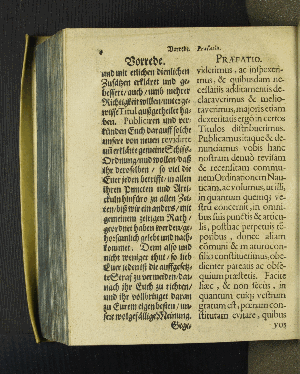 Vorrede. Præfatio.
Vorrede.
und mit etlichen dienlichen
Zusätzen erkläret und ge-
bessert / auch / umb mehrer
Richtigkeit willen / unter ge-
wisse Titul außgetheilet ha-
ben. Publiciren und ver-
künden Euch darauff solche
unsere von neuen revidirte
und erklärte gemeine Schiffs-
Ordnung / und wollen / daß
Ihr derselben / so viel die
Euer jeden betrifft / in allen
ihren Puncten und Arti-
culn hinfüro zu allen Zei-
ten / biß wir ein anders / mit
gemeinem zeitigen Rath /
geordnet haben werden / ge-
horsamlich gelebt und nach-
kommet. Denn also und
nicht weniger thut / so lieb
Euer jedem ist die auffgesetz-
te Straf zu vermeiden / dar-
nach ihr Euch zu richten /
und ihr vollbringet daran
zu Eurem eigen besten / un-
sere wolgefällige Meinung.
Gege-
PRÆFATIO.
viderimus, ac inspexeri-
mus, & quibusdam ne-
cessariis additamentis de-
claraverimus & melio-
raverimus, majoris etiam
dexteritatis ergo in certos
Titulos distribuerimus.
Publicamus itaque & de-
nunciamus vobis hanc
nostram denuò revisam
& recensitam commu-
nem Ordinationem Nau-
ticam, ac volumus, ut illi,
in quantum quemq; ve-
strû concernit, in omni-
bus suis punctis & articu-
lis, posthac perpetuis tê-
poribus, donec aliam
cômuni & maturo con-
silio constituerimus, obe-
dienter pareatis ac obse-
quium præstetis. Facite
hæc, & non secus, in
quantum cuiq; vestrum
gratum est, pœnam con-
stitutam evitare, quibus
vos